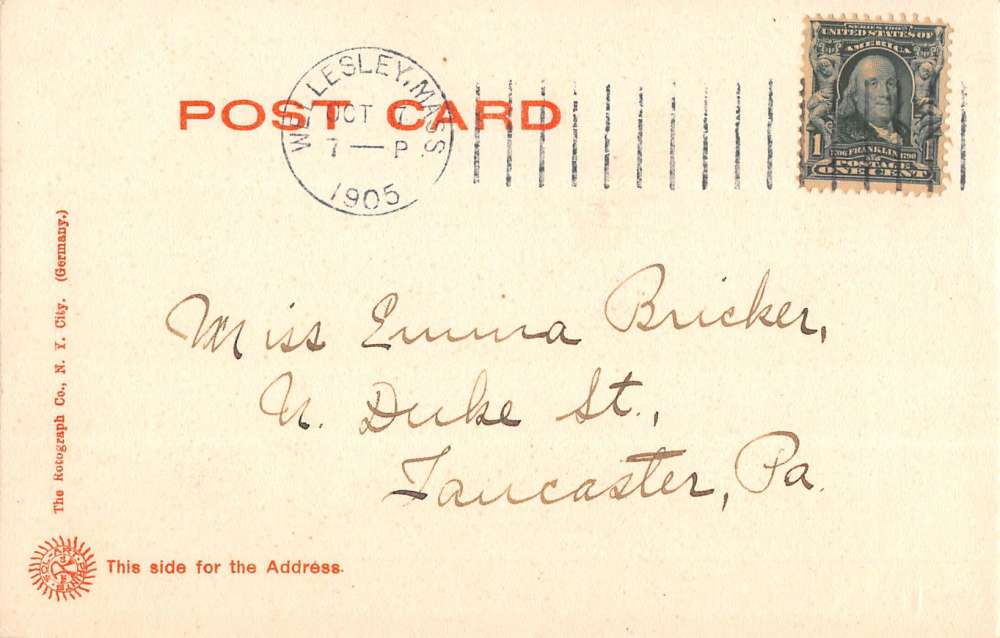 POST CARD
WELLESLEY, MASS.
OCT 7
7 — P
1905
SERIES 1902
UNITED STATES OF
AMERICA
1 1706 FRANKLIN 1790 1
POSTAGE
ONE CENT
Miss Emma Bricker,
N. Duke St.,
Lancaster, Pa.
The Rotograph Co., N. Y. City. (Germany.)
SOL-ART PRINTS
This side for the Address.